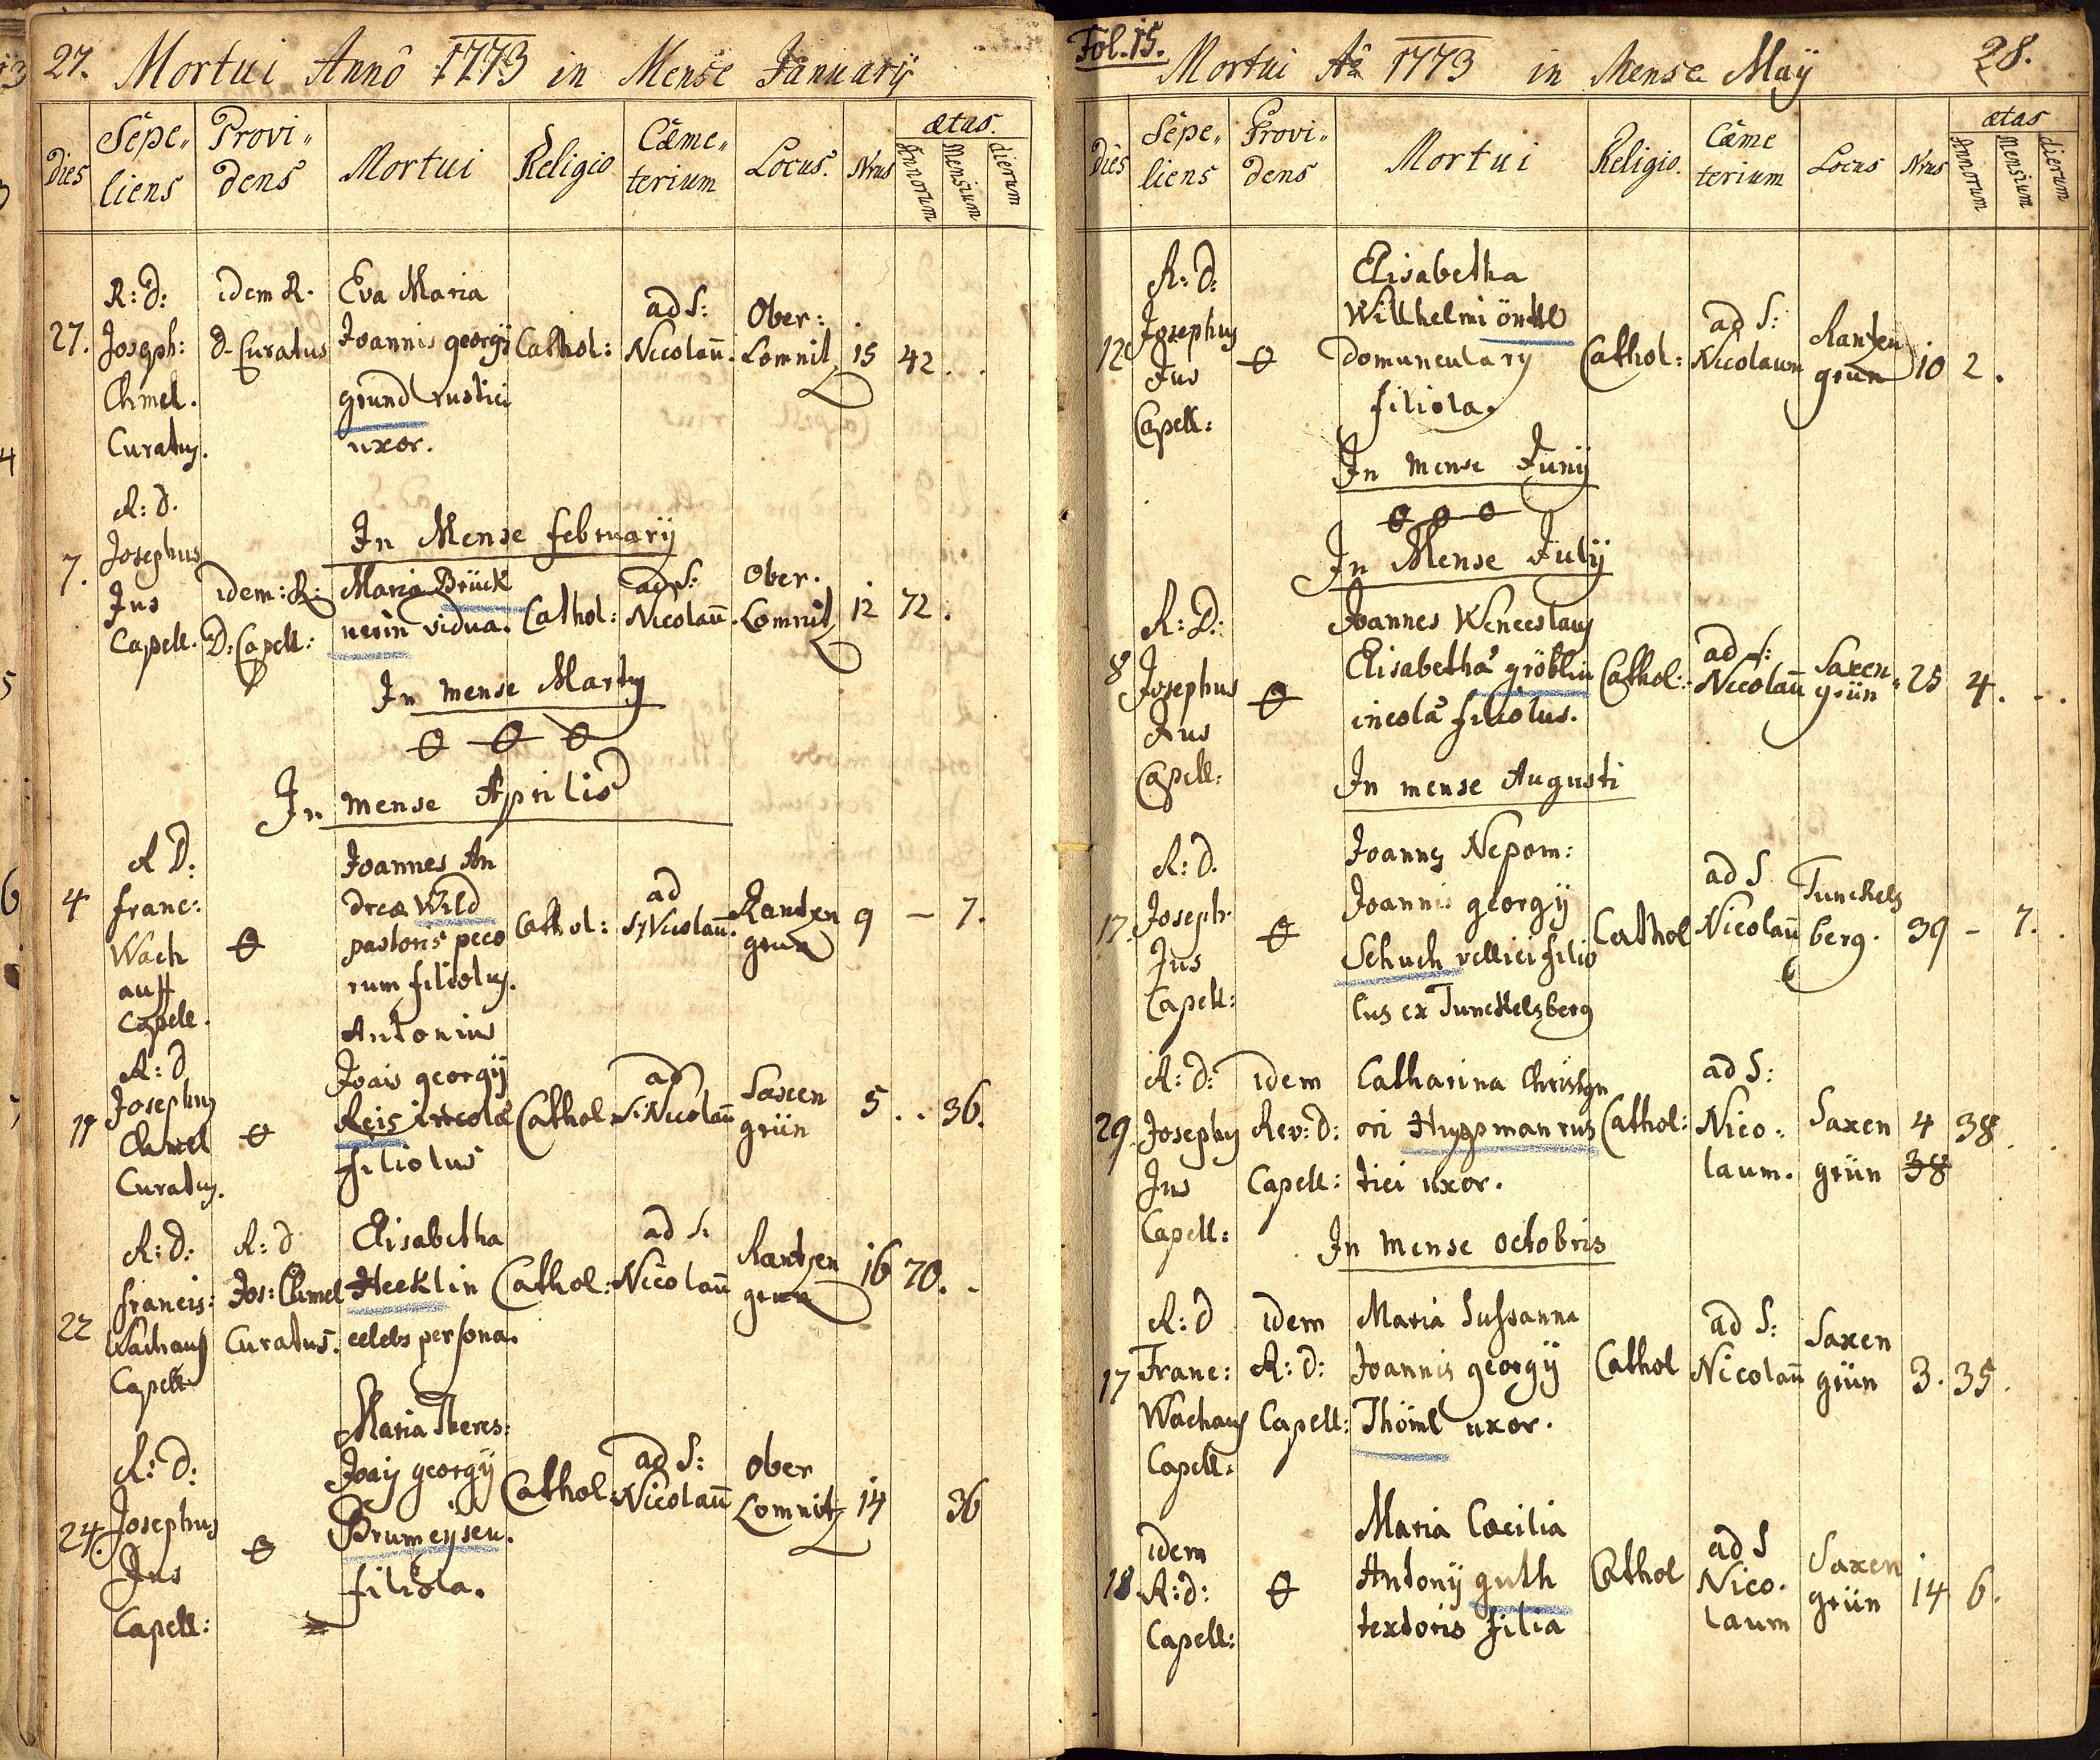 27. Mortui Annô 1773 in Mense Januarÿ
Dies
Sepe„
liens
Provi„
dens
Mortui
Religio
Cæme„
terium
Locus.
Nrus
ætas.
Annorum
Mensium
dierum
27.
R: D:
Joseph:
Chmel.
Curatus.
idem R.
D. Curatus
Eva Maria
Joannis georgÿ
grund rustici
uxor.
Cathol:
ad S:
Nicolaū.
Ober:
Lomnitz
15
42.
In Mense februarÿ
7.
R: D.
Josephus
Jus
Capell.
idem: R:
D: Capell:
Maria Brück
nerin vidua.
Cathol:
ad S:
Nicolaū.
Ober.
Lomnitz
12
72.
In mense Martÿ
In mense Aprilis
4
R D:
franc:
Wach
auff
Capell.
Joannes An
dreæ Wild
pastoris peco
rum filiolus.
Cathol:
ad
S: Nicolaū.
Rantzen
grün
9
–
7.
R: D
Josephus
Chmel
Curatus.
Antonius
Joais georgÿ
Reis incolæ
filiolus
Cathol.
ad
S: Nicolaū
Saxen
grün
5
. .
36.
22
R: D:
francis:
Wachauf
Capell.
R: D
Jos: Chmel
Curatus.
Elisabetha
Hecklin
celebs persona.
Cathol:
ad S:
Nicolaū
Rantzen
grün
16
70.
24.
R: D:
Josephus
Jus
Capell:
Maria Theres:
Joais georgÿ
Brumeysen.
filiola.
Cathol:
ad S:
Nicolaū
Ober
Lomnitz
14
36
Fol. 15.
Mortui Aō 1773 in Mense Maÿ
28.
Dies
Sepe„
liens
Provi„
dens
Mortui
Religio.
Cæme
terium
Locus
Nrus
ætas
Annorum
Mensium
dierum
12
R: D:
Josephus
Jus
Capell:
Elisabetha
Willhelmi
domuncularÿ
filiola.
Cathol:
ad S:
Nicolaum
Rantzen
grün
10
2.
In mense Junÿ
In Mense Julÿ
8
R: D:
Josephus
Jus
Capell:
Joannes Wenceslaus
Elisabethæ gröblin
incolæ filiolus.
Cathol:
ad S:
Nicolaū
Saxen„
grün
25
4.
In mense Augusti
17.
R: D.
Joseph.
Jus
Capell:
Joannes Nepom:
Joannis georgÿ
Schuch vellici filio
lus ex Tunckelsberg
Cathol
ad S
Nicolaū
Tunckels
berg.
39
–
7.
29.
R: D:
Josephus
Jus
Capell:
idem
Rev: D:
Capell:
Catharina Christoph
ori Huppman rus
tici uxor.
Cathol:
ad S:
Nico.
laum.
Saxen
grün
4
38
38.
In mense octobris
17
R: D
Franc:
Wachauf
Capell:
idem
R: D:
Capell:
Maria Sussanna
Joannis georgÿ
Thöml uxor.
Cathol
ad S:
Nicolaū
Saxen
grün
3.
35.
18.
idem
R: D:
Capell:
Maria Cæcilia
Antonÿ guth
textoris filia
Cathol
ad S
Nico.
laum
Saxen
grün
14
6.